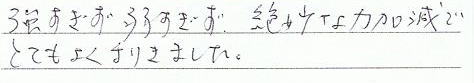 強すぎず弱すぎず、絶妙な力加減で
とてもよくなりました。